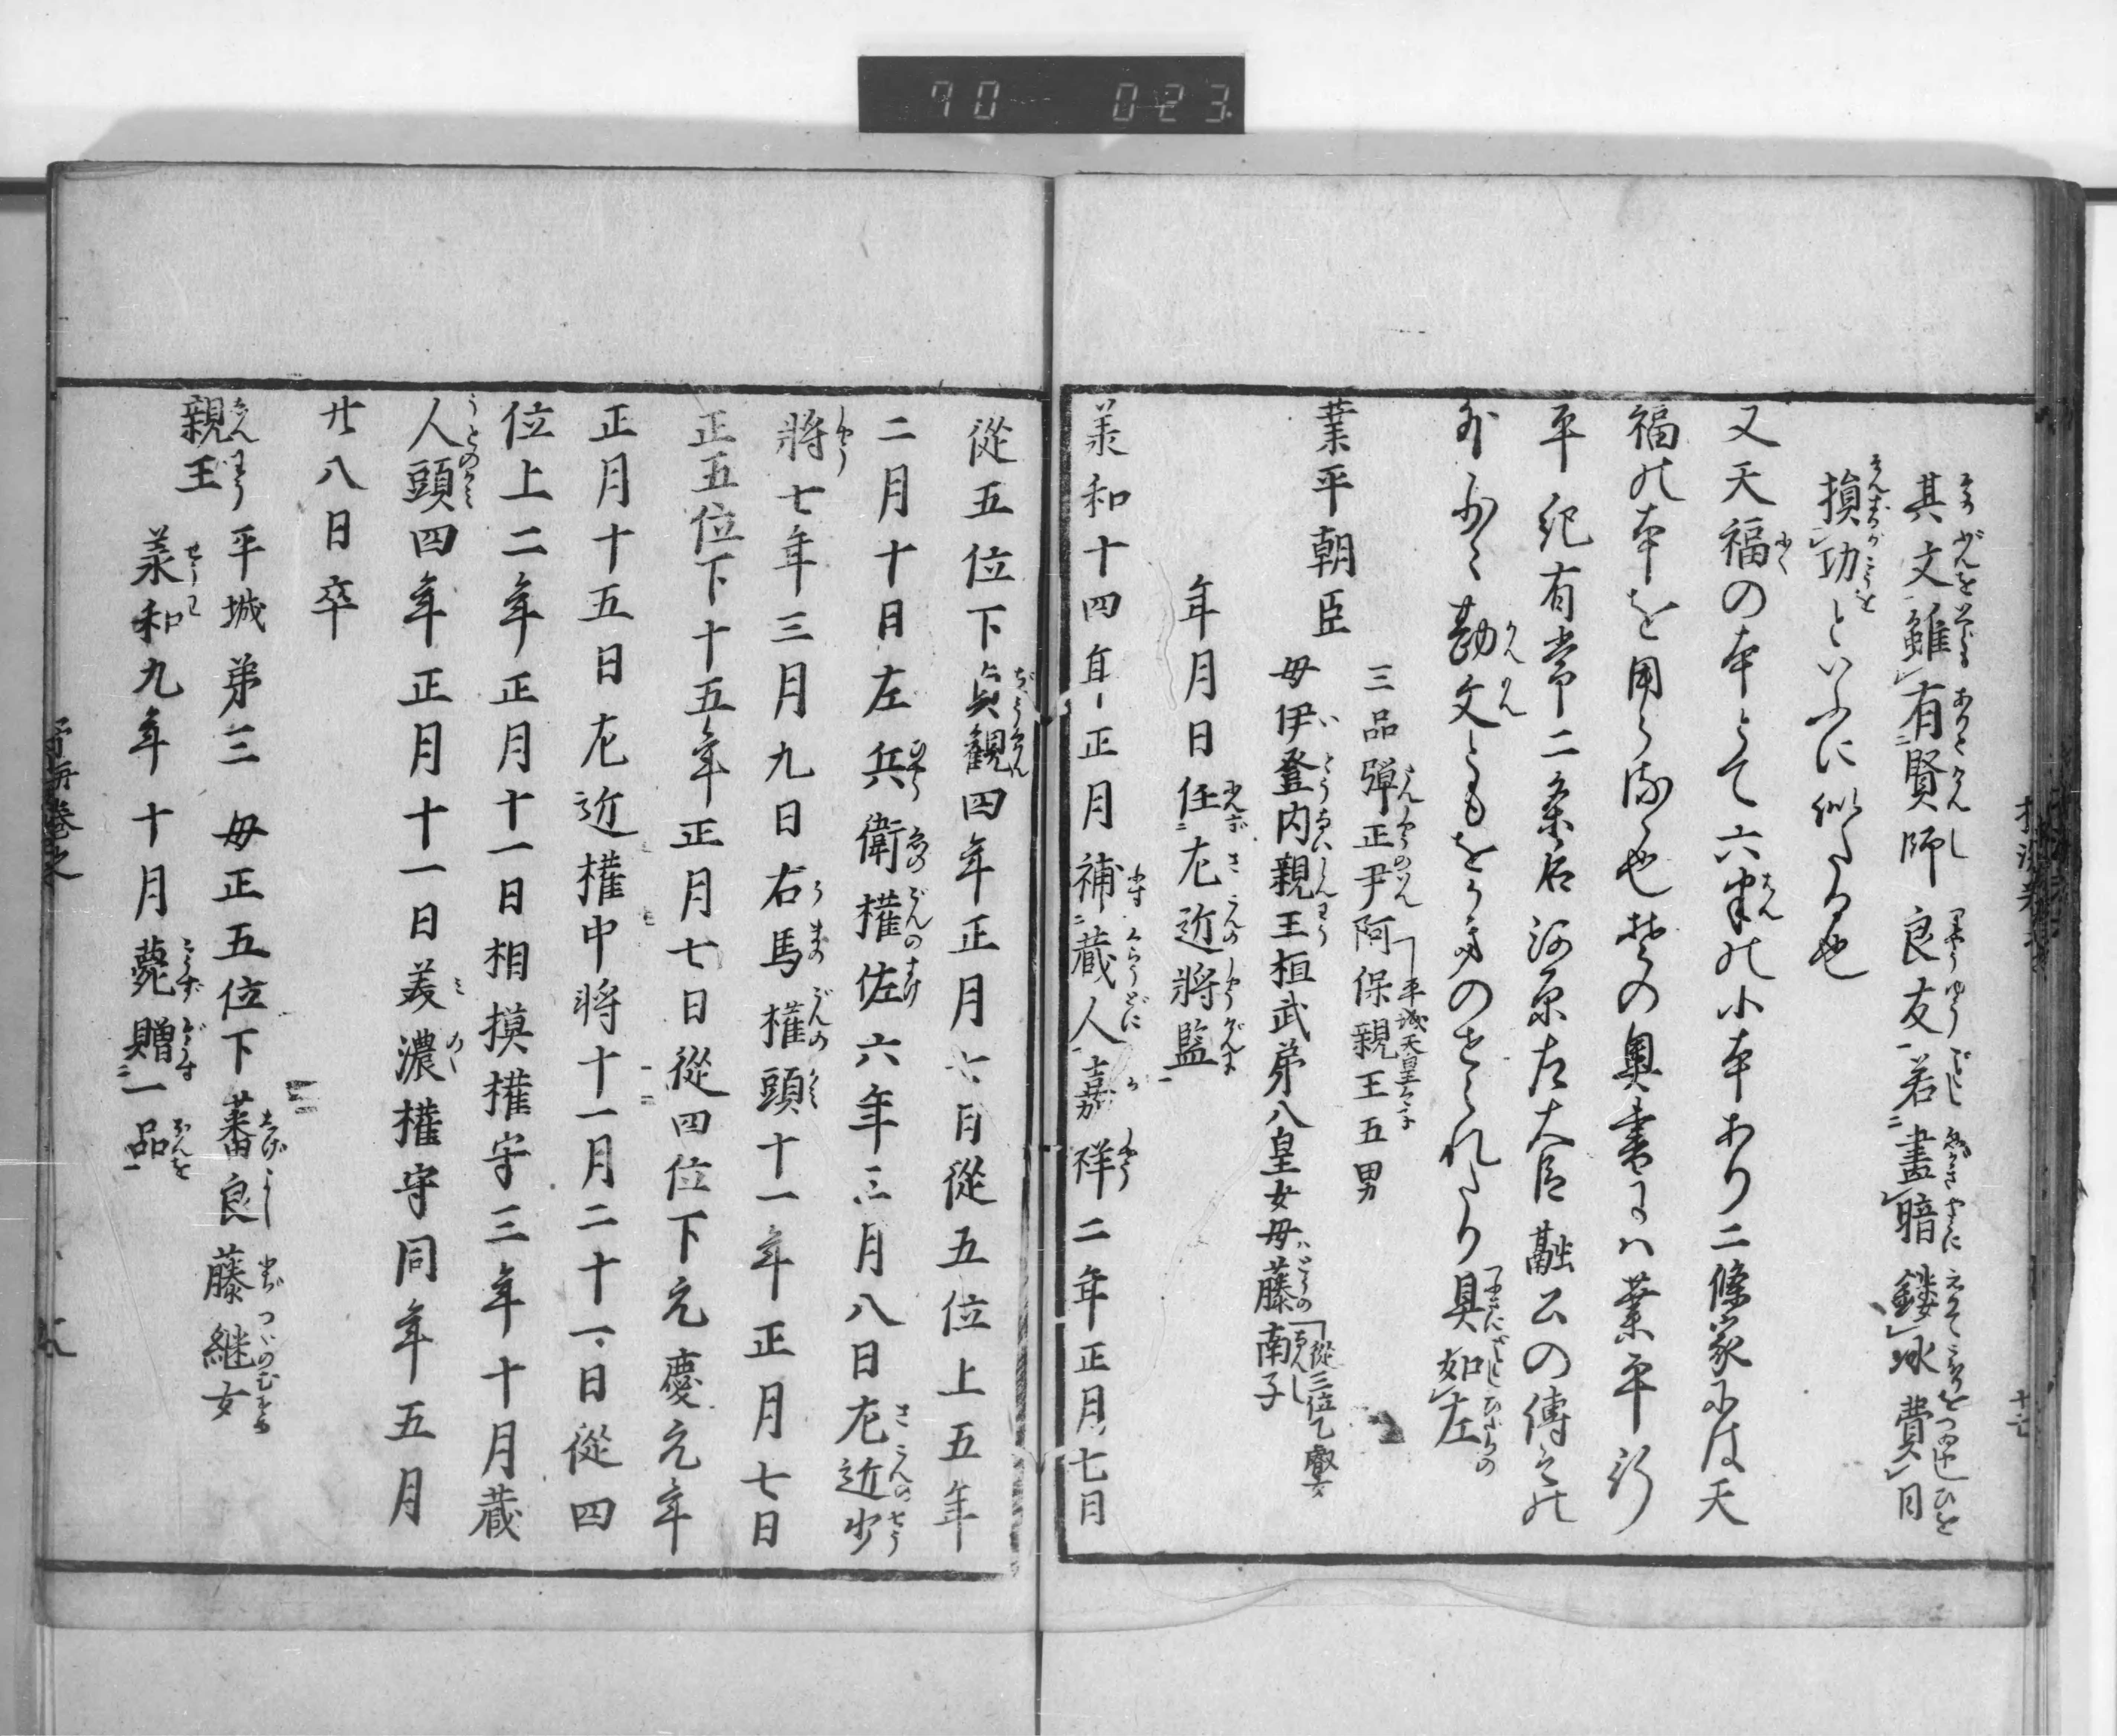 70 023
其文雖有賢師良友若畫暗鏤氷費日
損功といふに似たる也
又天福の本とて六半の小本あり二條家には天
福の本を用らるゝ也其の奥書には業平行
平紀有常二条后河原左大臣融公の傳その
外少々勘文ともをかきのせられたり具如左
業平朝臣
三品彈正尹阿保親王五男
平城天皇之子
母伊登内親王桓武第八皇女母藤南子
從三位乙叡女
年月日任左近將監
羕和十四年正月補蔵人嘉祥二年正月七日
從五位下貞観四年正月七日從五位上五年
二月十日左兵衛權佐六年三月八日左近少
將七年三月九日右馬權頭十一年正月七日
正五位下十五年正月七日從四位下元慶元年
正月十五日左近權中將十一月二十一日從四
位上二年正月十一日相摸權守三年十月蔵
人頭四年正月十一日美濃權守同年五月
廿八日卒
親王平城第三 母正五位下蕃良藤継女
羕和九年十月薨贈一品